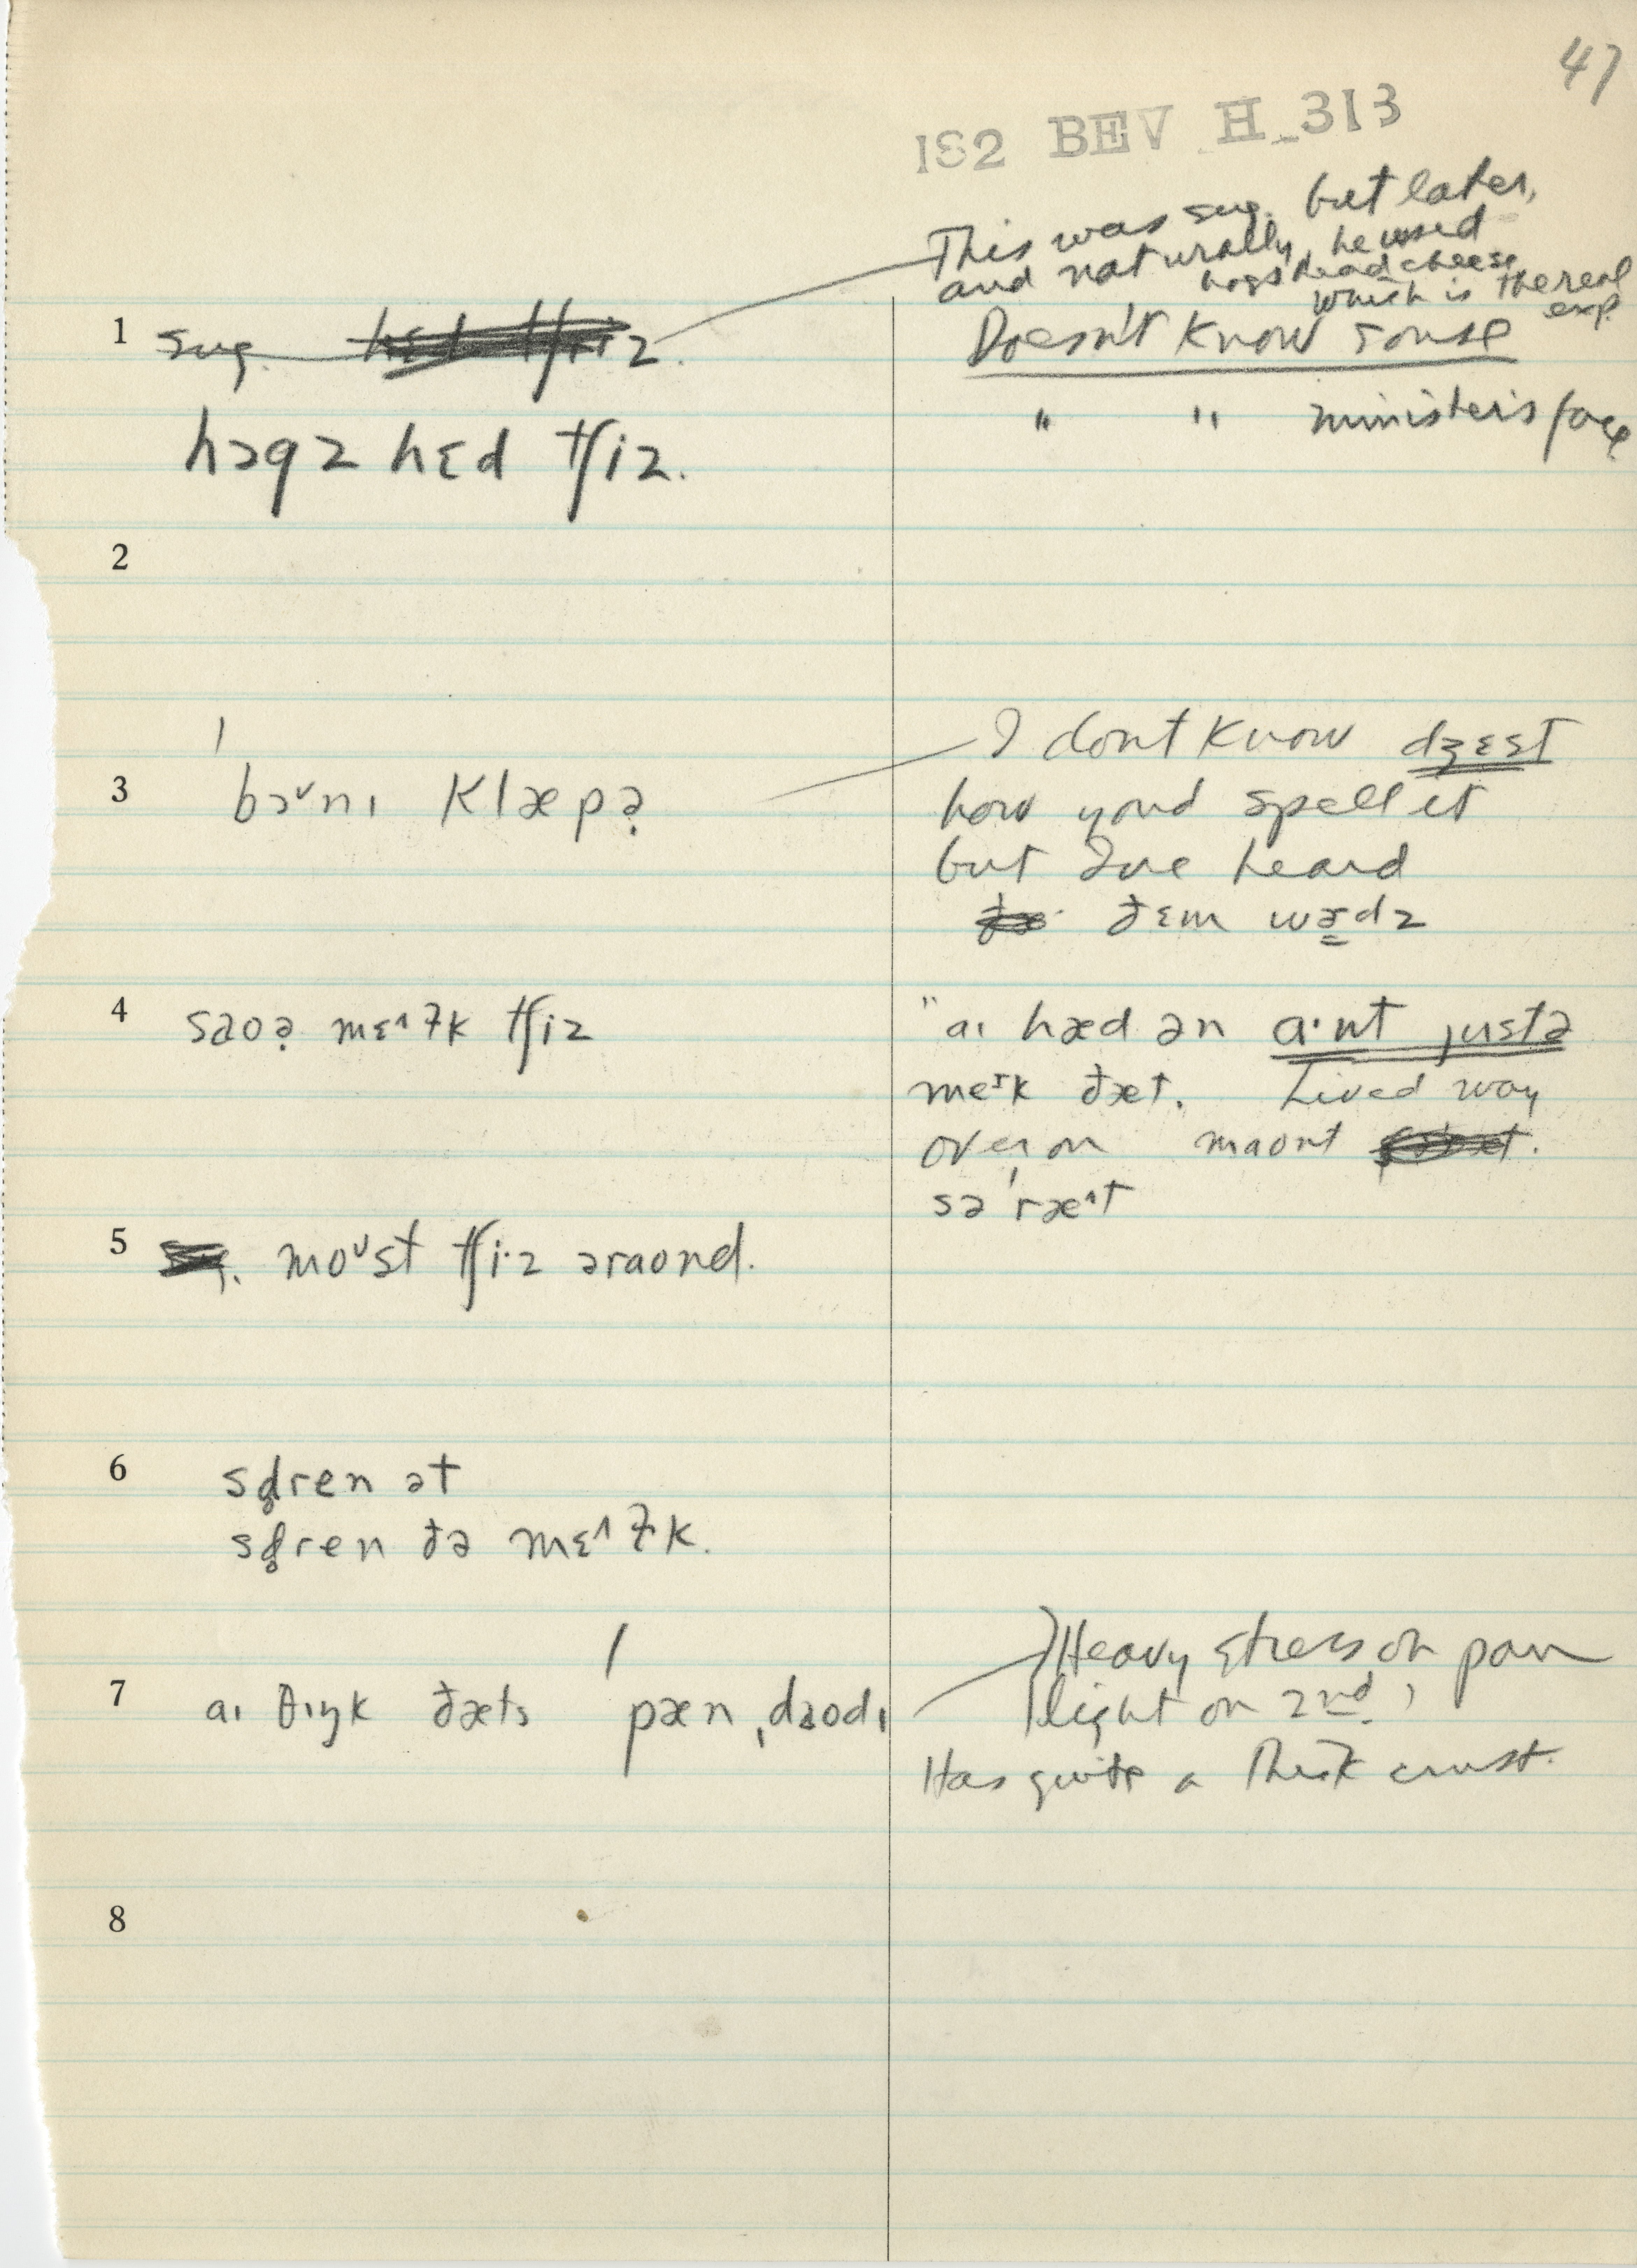 47
182 BEV H_313
This was sug. but later,
and naturally, he used
hogshead cheese
which is the real
exp.
1 sug.
Doesn't know souse
" " minister's face
hɔgz hɛd tʃiz.
2
3 bɔᵛnɪ klæpə̣
I dont know dʒɛst
how youd spell it
but I've heard
ðɛm wɜdz
4 saoə̣ mɛ˄ɫk tʃiz
"aɪ hæd ən a·nt justə
meɪk ðæt. Lived way
over on maont
sə'ræ˄t
5 moᵘst tʃi·z əraond.
6 sd̥ren ət
sd̥ren ðə mɛ˄ɫk.
7 aɪ θɪŋk ðæts 'pæn ˌdaodɪ
Heavy stress on pan
light on 2nd,
Has quite a thick crust.
8